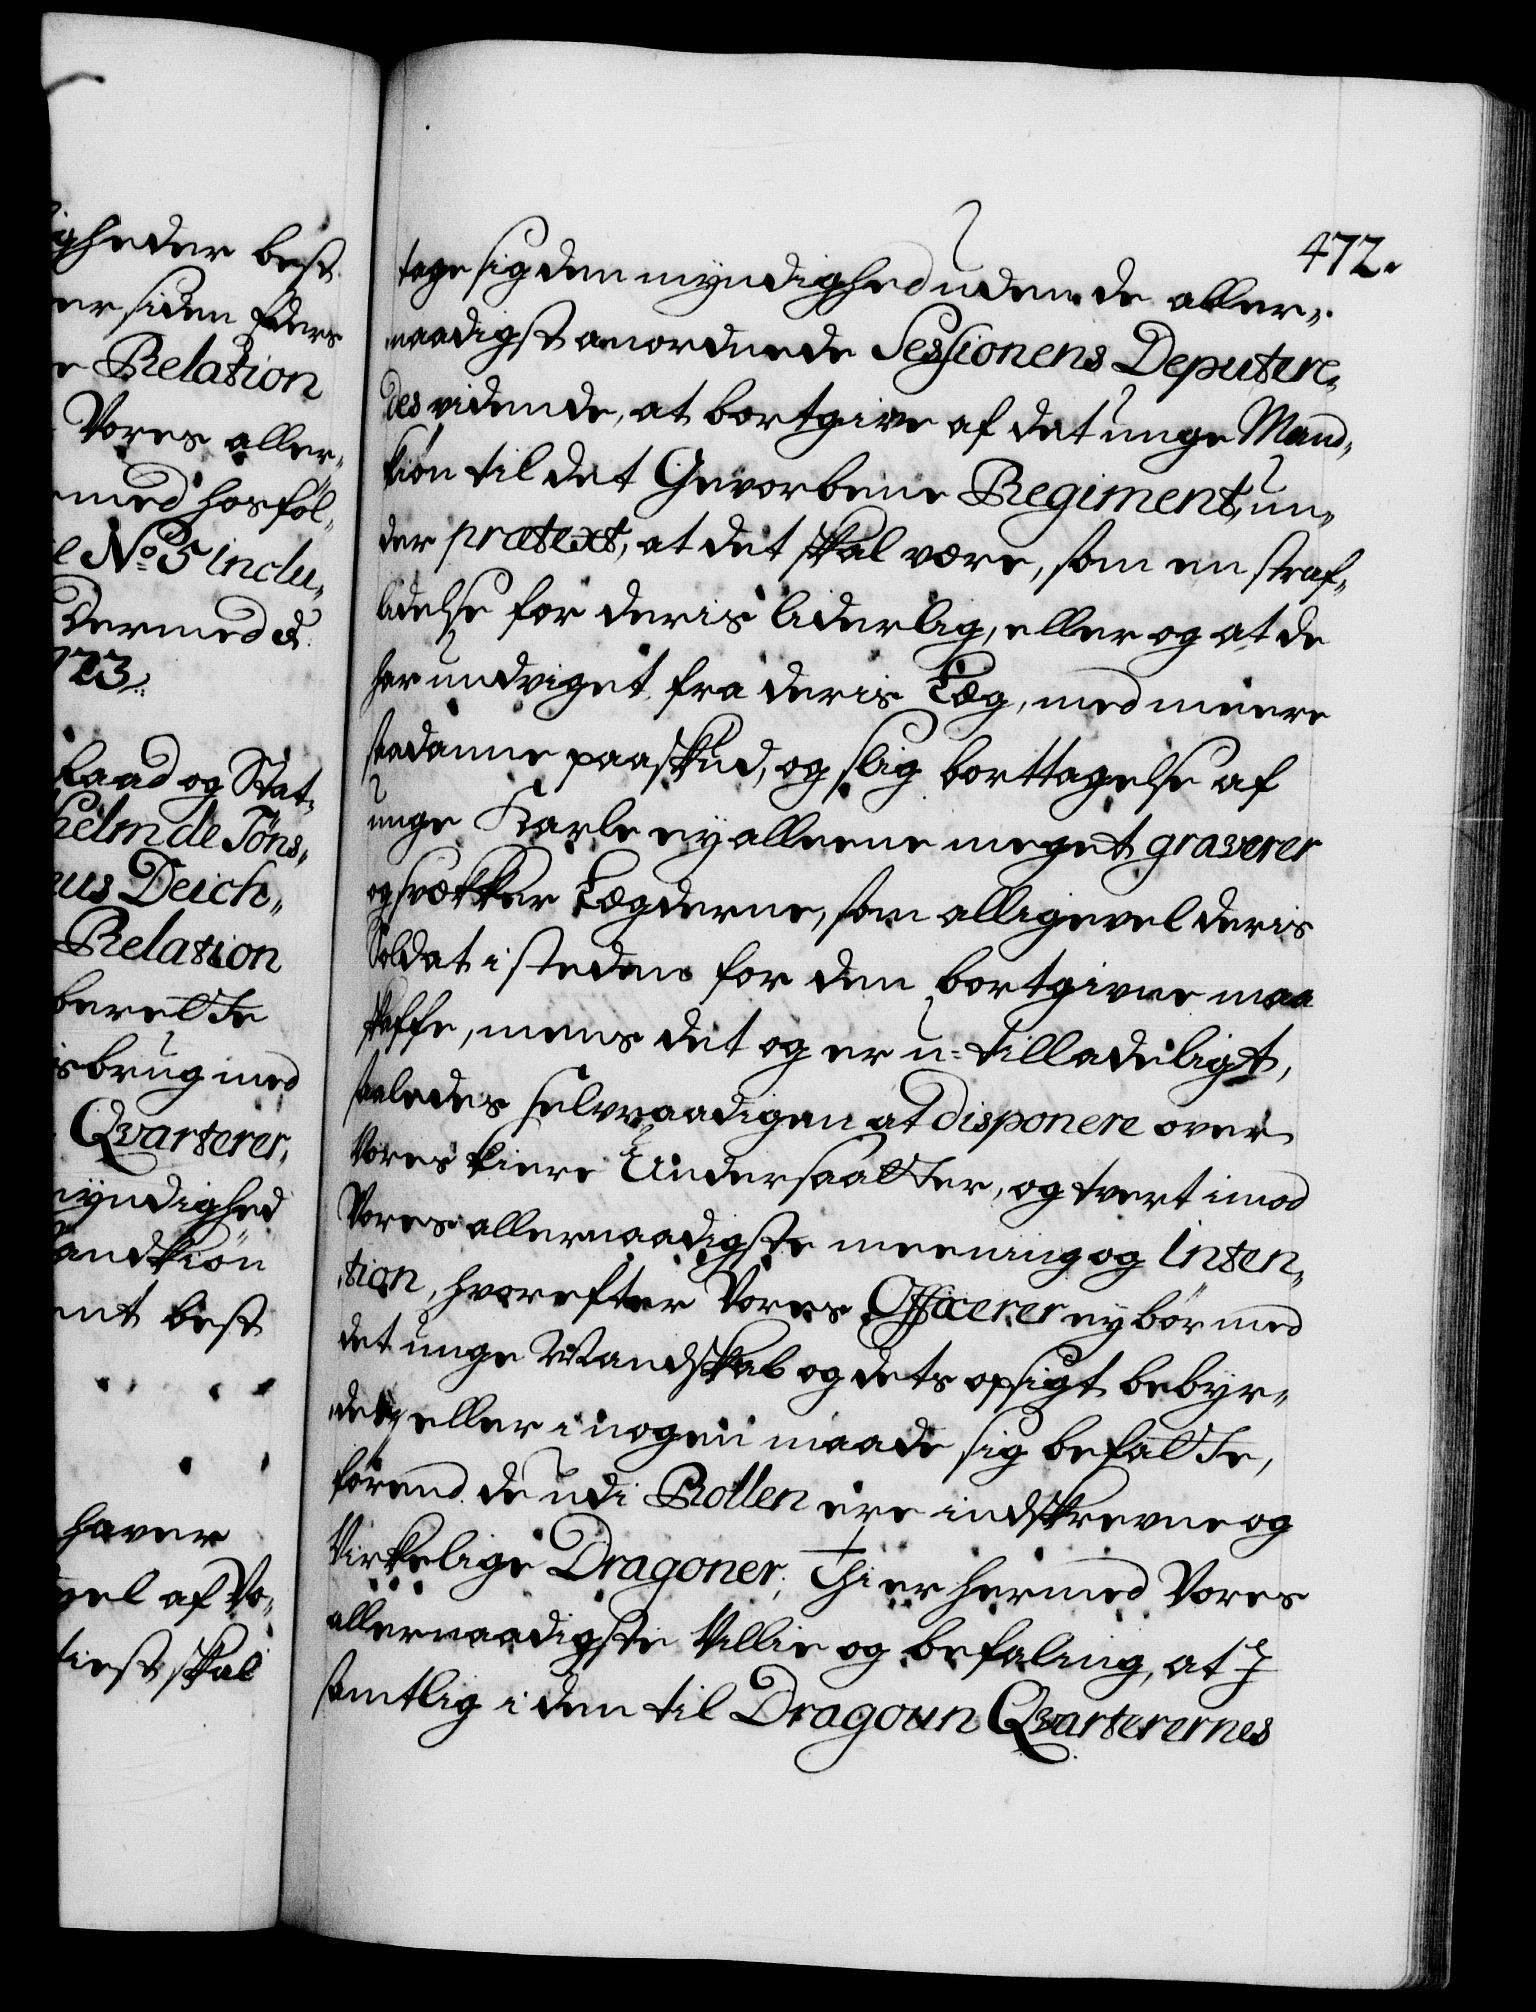 igheder best
er siden Eders
e Relation
Vores aller„
med hosføl„
No 5 inclu„
dermed d.
723.
Raad og Stat„
helm de Töns„
us Deich„
Relation
berette
isbrug med
Qvarterer,
myndighed
andkiön
ent best
haver
gel af Vo„
tiest skal
472.
tage sig den myndighed uden de aller„
naadigst anordnede Sessionens Deputere„
des vidende, at bortgive af det unge Mand„
kiön til det Gevorbene Regiment, un„
der prætext, at det skal være, som en straf„
lidelse for deris liderlig, eller og at de
har undviget fra deris Læg, med meere
saadanne paaskud, og slig borttagelse af
unge Karle ey alleene meget graverer
og svækker Lægderne, som alligevel deris
Soldat i steden for den bortgivne maa
skaffe, mens det og er u-tilladeligt,
saaledes selvraadigen at disponere over
Vores kiere Undersaatter, og tvert imod
Vores allernaadigste meening og Inten„
tion, hvorefter Vores Officerer ey bör med
det unge Mandskab og dets opsigt bebyr„
des, eller i nogen maade sig befatte,
förend de udi Rollen ere indskrevne og
Virkelige Dragoner; Thi er hermed Vores
allernaadigste Villie og befaling, at I
samtlig i den til Dragoun Qvarterernes